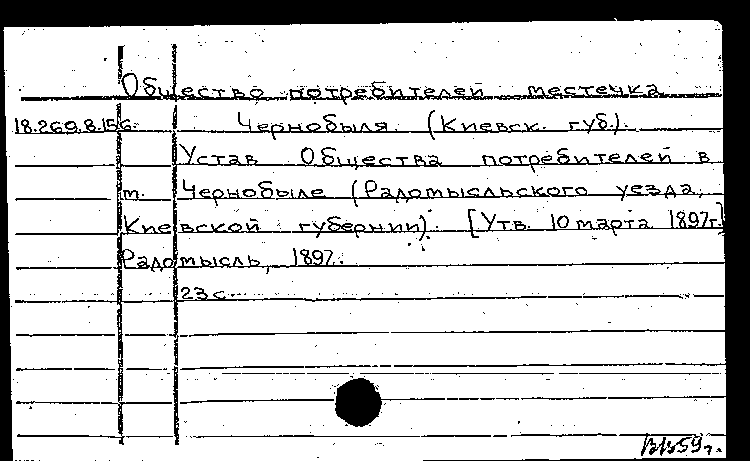 Общество потребителей местечка
18.269.8.156. Чернобыля. (Киевск. губ.).
Устав Общества потребителей в
м. Чернобыле (Радомысльского уезда,
Киевской губернии). [Утв. 10 марта 1897г.]
Радомысль, 1897.
23 с.